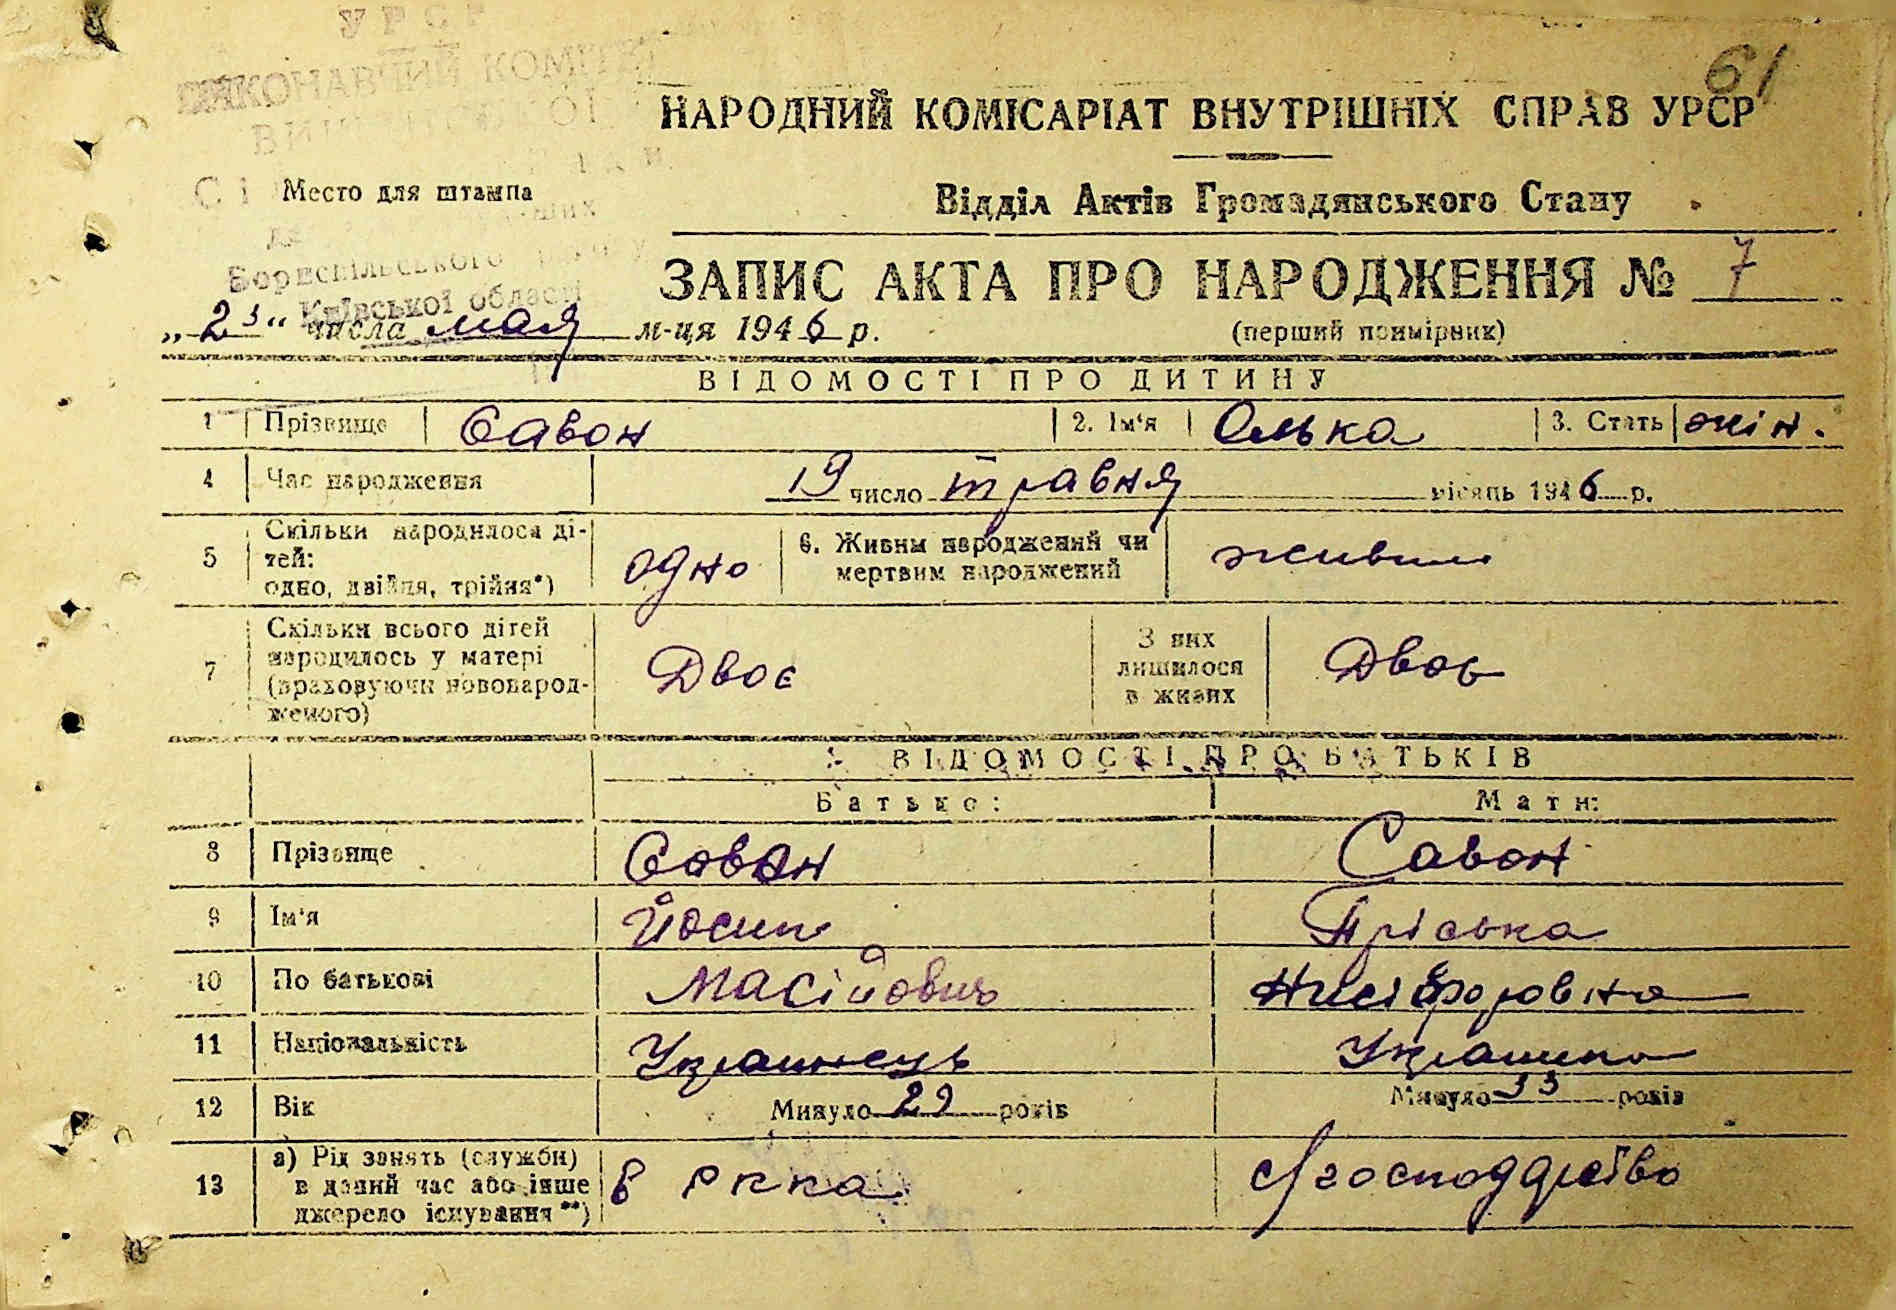 61
УРСР
ВИКОНАВЧИЙ КОМІТЕТ
НАРОДНИЙ КОМІСАРІАТ ВНУТРІШНІХ СПРАВ УРСР
Место для штампа
Відділ Актів Громадянського Стану
Бориспільського
Київської області
ЗАПИС АКТА ПРО НАРОДЖЕННЯ № 7
„23“ числа мая м-ця 1946 р.
(перший примірник)
ВІДОМОСТІ ПРО ДИТИНУ
1 Прізвище Савон 2. Ім'я Олька 3. Стать жін.
4 Час народження 19 число травня місяць 1946 р.
5 Скільки народилося ді-
тей:
одно, двійня, трійня*) одно 6. Живим народжений чи
мертвим народжений живим
7 Скільки всього дітей
народилось у матері
(враховуючи новонарод-
женого) Двоє З них
лишилося
в живих Двоє
ВІДОМОСТІ ПРО БАТЬКІВ
Батько: Мати:
8 Прізвище Савон Савон
9 Ім'я Йосип Пріська
10 По батькові
11 Національність Українець Українка
12 Вік Минуло 29 років Минуло 33 років
13 а) Рід занять (служби)
в даний час або інше
джерело існування**) В РККА